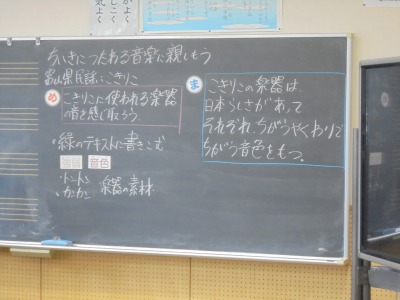 ちいきにつたわる音楽に親しもう
富山県民謡 こきりこ
め
こきりこに使われる楽器
の音を感じ取ろう
・緑のテキストに書きこむ
楽器 音色
・トントン
・カンカン 楽器の素材
ま
こきりこの楽器は
日本らしさがあって
それぞれ、ちがうやくわりで
ちがう音色をもつ。